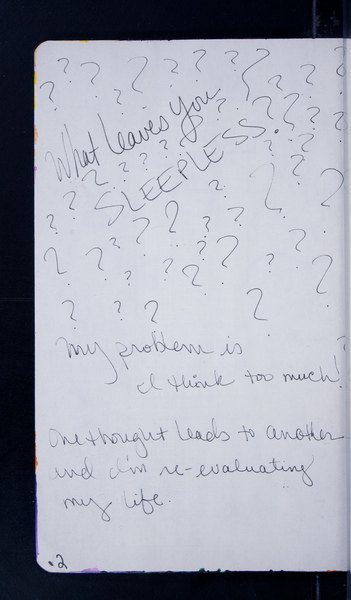 What leaves you
SLEEPLESS.
? ? ? ? ? ? ? ? ? ? ? ? ? ? ? ? ? ? ? ? ? ? ? ? ? ? ? ? ? ? ? ? ? ? ? ? ? ? ? ? ? ? ? ? ? ? ? ?
My problem is
I think too much!
One thought leads to another
and I'm re-evaluating
my life.
.2